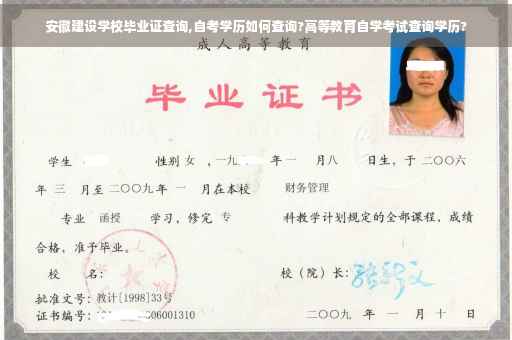 安徽建设学校毕业证查询,自考学历如何查询?高等教育自学考试查询学历?
成人高等教育
毕业证书
学生 性别 女 , 一九 年 一 月八 日生, 于 二〇〇六
年 三 月至 二〇〇九 年 一 月在本校 财务管理
专业 函授 学习, 修完 专 科教学计划规定的全部课程, 成绩
合格, 准予毕业。
校 名: 校（院）长:
批准文号: 教计[1998]33号
证书编号: 06001310 二〇〇九 年 一 月 十 日